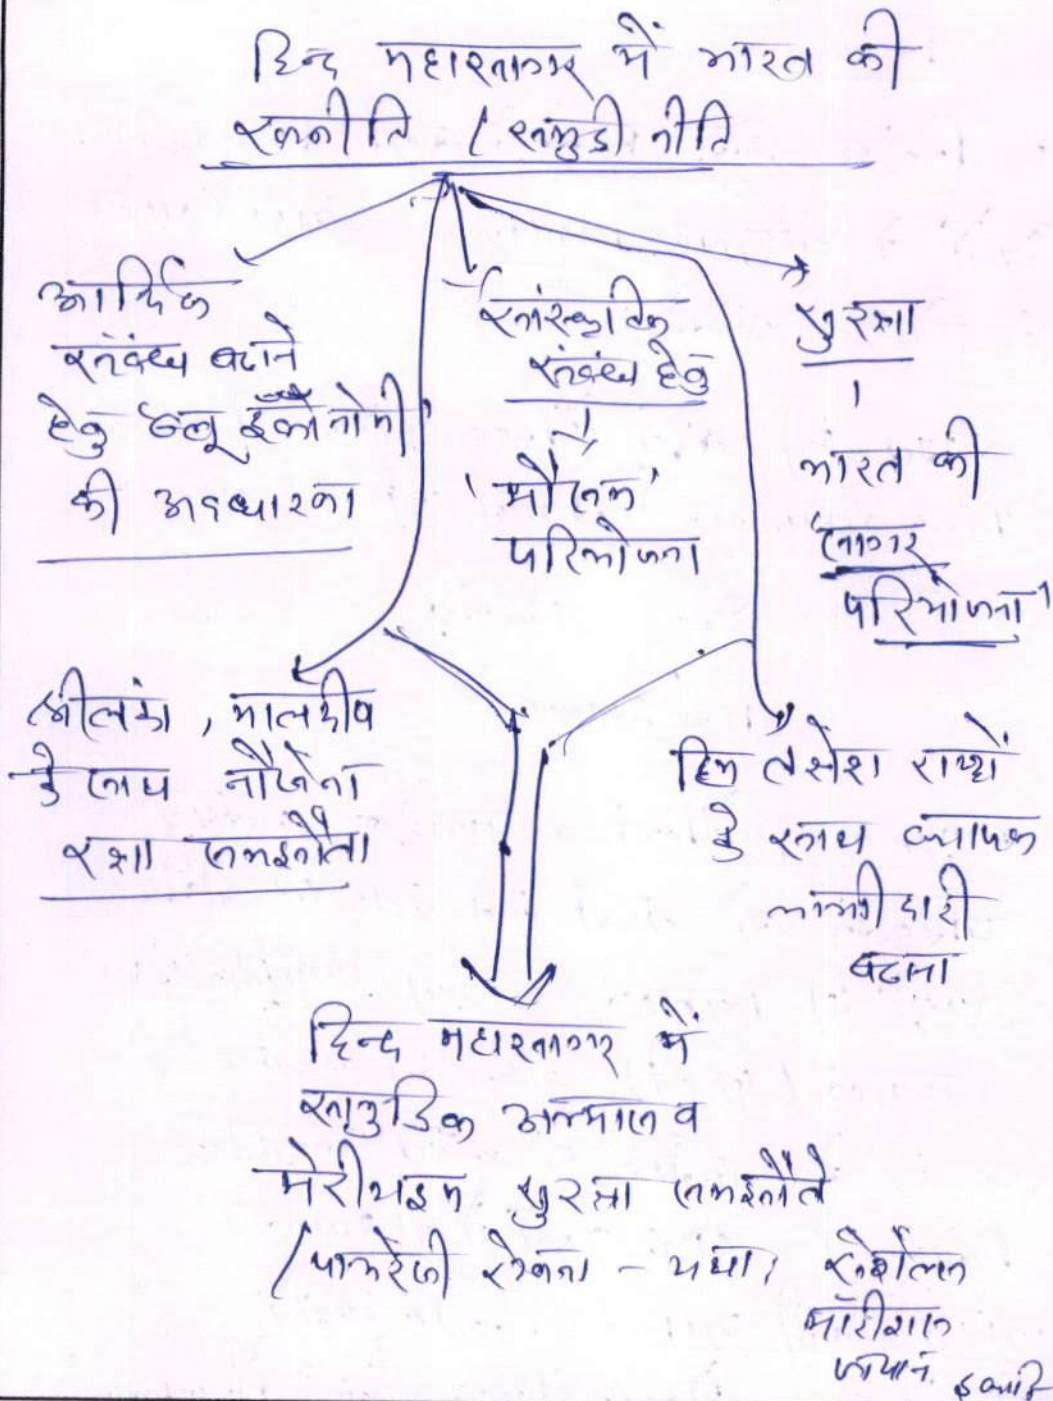 हिन्द महासागर में भारत की
रणनीति / समुद्री नीति
आर्थिक
संबंध बढाने
हेतु ब्लू इकोनोमी
की अवधारणा
सांस्कृतिक
संबंध हेतु
'मौसम'
परियोजना
सुरक्षा
भारत की
'सागर
परियोजना'
श्रीलंका, मालदीव
के साथ नौसेना
रक्षा समझौता
हिम तक्षेश राष्ट्रों
के साथ व्यापक
साझीदारी
बढाना
हिन्द महासागर में
सामुद्रिक अभ्यास व
मेरीटाइम सुरक्षा समझौते
(पायरेसी रोकना - यथा, सेशेल्स
मॉरीशस
जापान इत्यादि